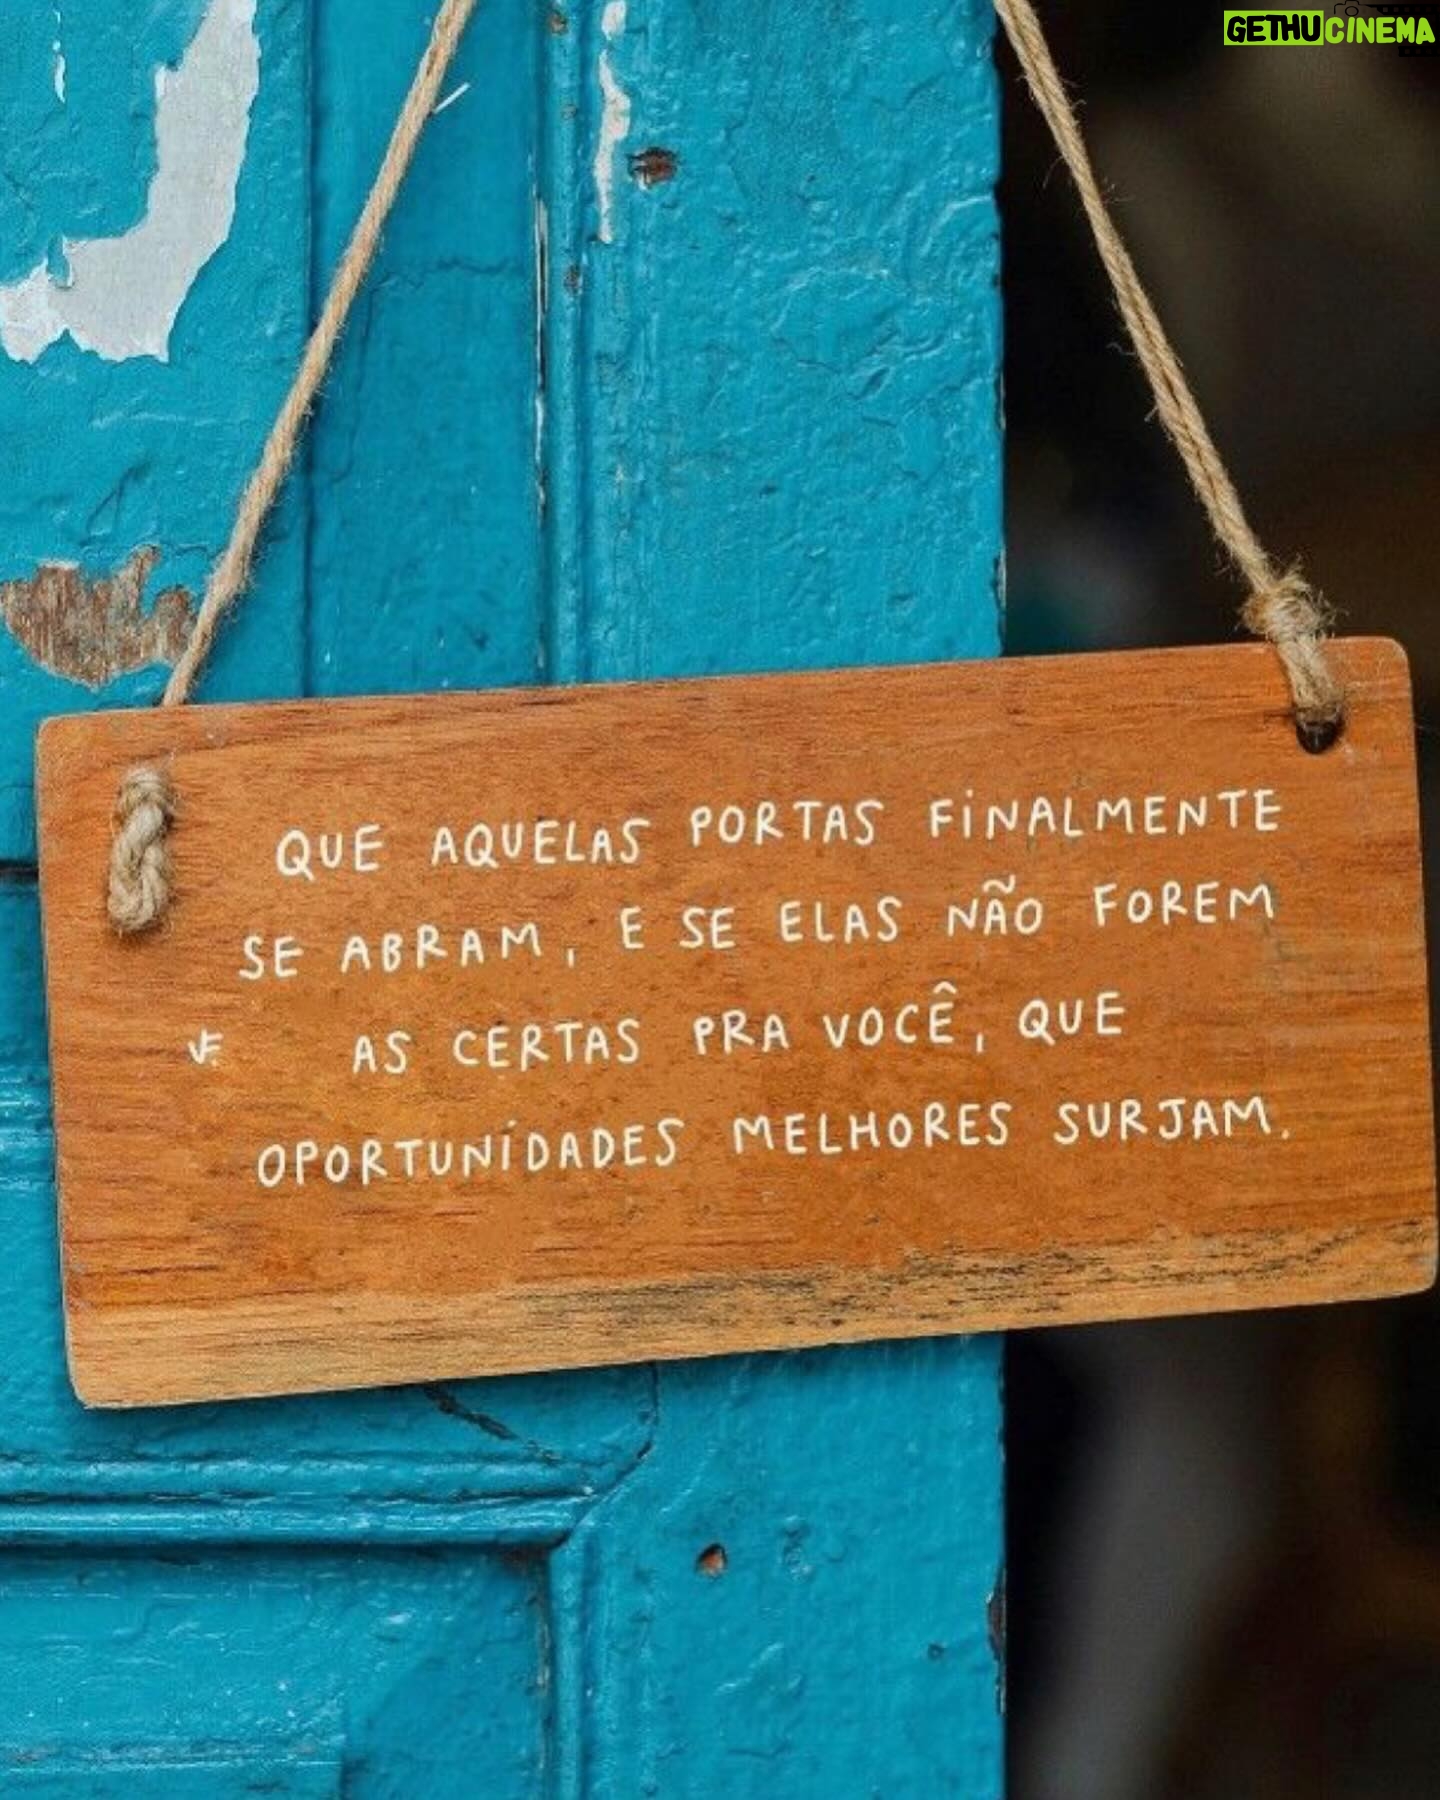 GETHUCINEMA
QUE AQUELAS PORTAS FINALMENTE
SE ABRAM, E SE ELAS NÃO FOREM
AS CERTAS PRA VOCÊ, QUE
OPORTUNIDADES MELHORES SURJAM.
VF.